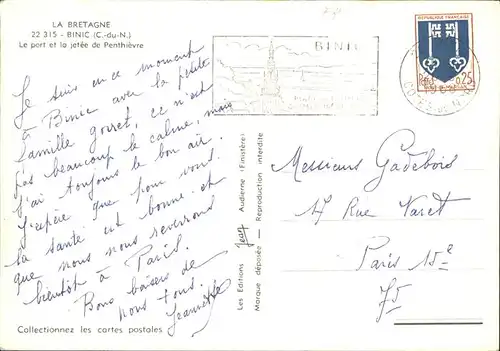 LA BRETAGNE
22 315 - BINIC (C.-du-N.)
Le port et la jetée de Penthièvre
Je suis en ce moment
à Binic avec la petite
famille goiret, ce n'est
pas beaucoup le calme, mais
j'ai toujours le bon air.
J'espère que pour vous
la santé est bonne et
que nous nous reverrons
bientôt à Paris.
Bons baisers de
nous tous.
Jeannette
Collectionnez les cartes postales
Les Editions Jean Audierne (Finistère)
Marque déposée — Reproduction interdite
BINIC
REPUBLIQUE FRANÇAISE
0,25
Messieurs Gadebois
17 Rue Varet
Paris 15e
75